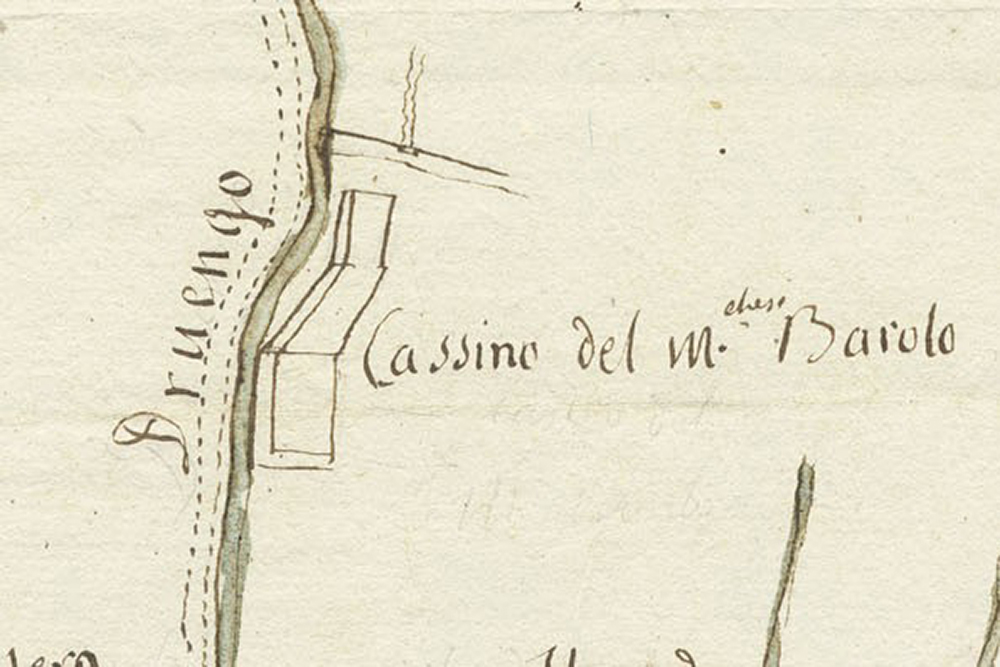 Druengo
Cassino del m.chese Barolo